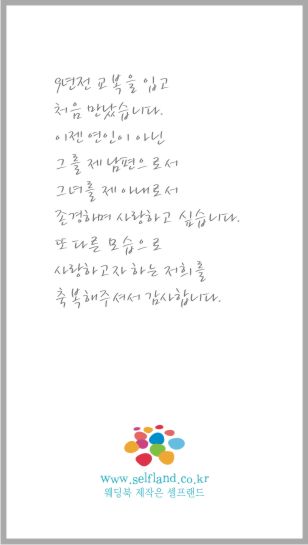 9년전 교복을 입고
처음 만났습니다.
이젠 연인이 아닌
그를 제 남편으로서
그녀를 제 아내로서
존경하며 사랑하고 싶습니다.
또 다른 모습으로
사랑하고자 하는 저희를
축복해주셔서 감사합니다.
www.selfland.co.kr
웨딩북 제작은 셀프랜드